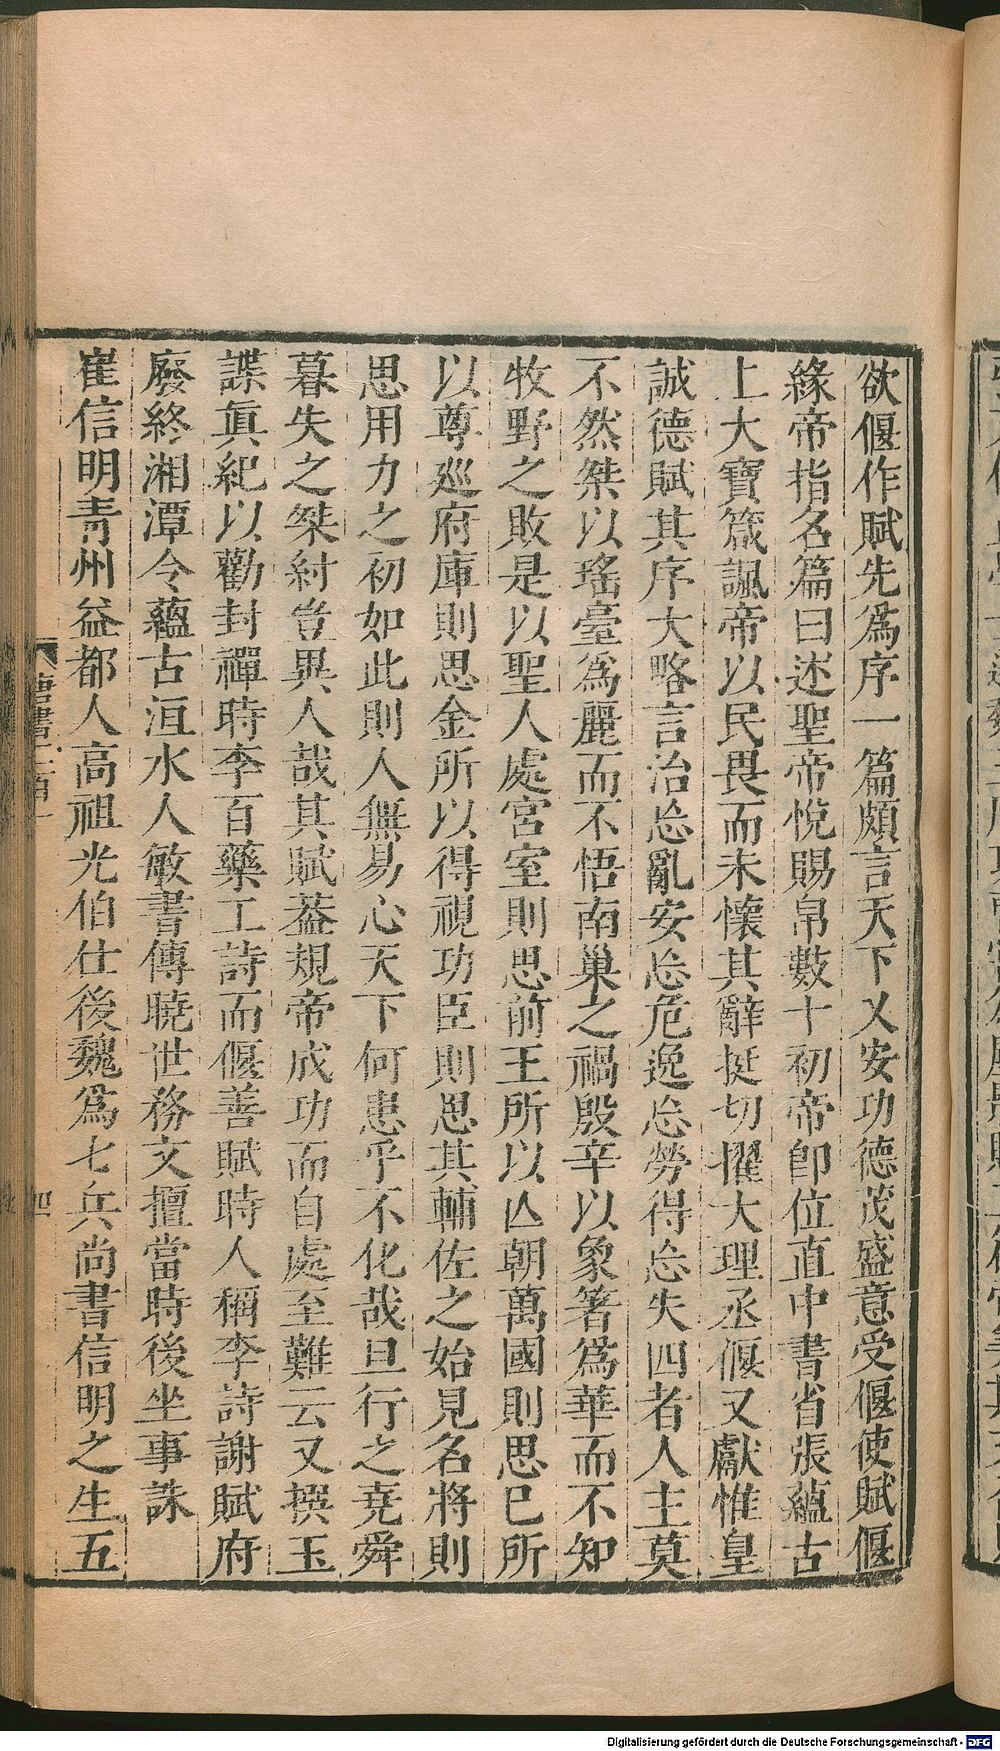 欲偃作賦先爲序一篇頗言天下乂安功德茂盛意受偃使賦偃
緣帝指名篇曰述聖帝悅賜帛數十初帝卽位直中書省張蘊古
上大寶箴諷帝以民畏而未懷其辭挺切擢大理丞偃又獻惟皇
誠德賦其序大略言治忩亂安忩危逸忩勞得忩失四者人主莫
不然桀以瑤臺爲麗而不悟南巢之禍殷辛以象箸爲華而不知
牧野之敗是以聖人處宮室則思前王所以亾朝萬國則思已所
以尊巡府庫則思金所以得視功臣則思其輔佐之始見名將則
思用力之初如此則人無易心天下何患乎不化哉旦行之堯舜
暮失之桀紂豈異人哉其賦葢規帝成功而自處至難云又撰玉
諜眞紀以勸封禪時李百藥工詩而偃善賦時人稱李詩謝賦府
廢終湘潭令蘊古洹水人敏書傳曉世務文擅當時後坐事誅
崔信明青州益都人高祖光伯仕後魏爲七兵尚書信明之生五
唐書二百一
四
Digitalisierung gefördert durch die Deutsche Forschungsgemeinschaft - DFG